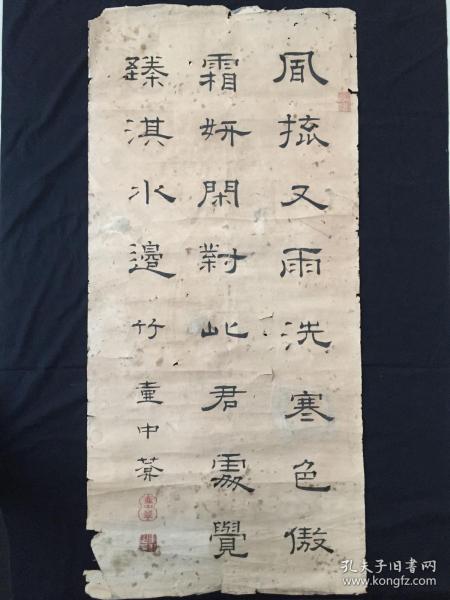 風梳又雨洗寒色傲
霜妍閑對此君處覺
臻淇水邊 竹
童中
孔夫子旧书网
www.kongfz.com